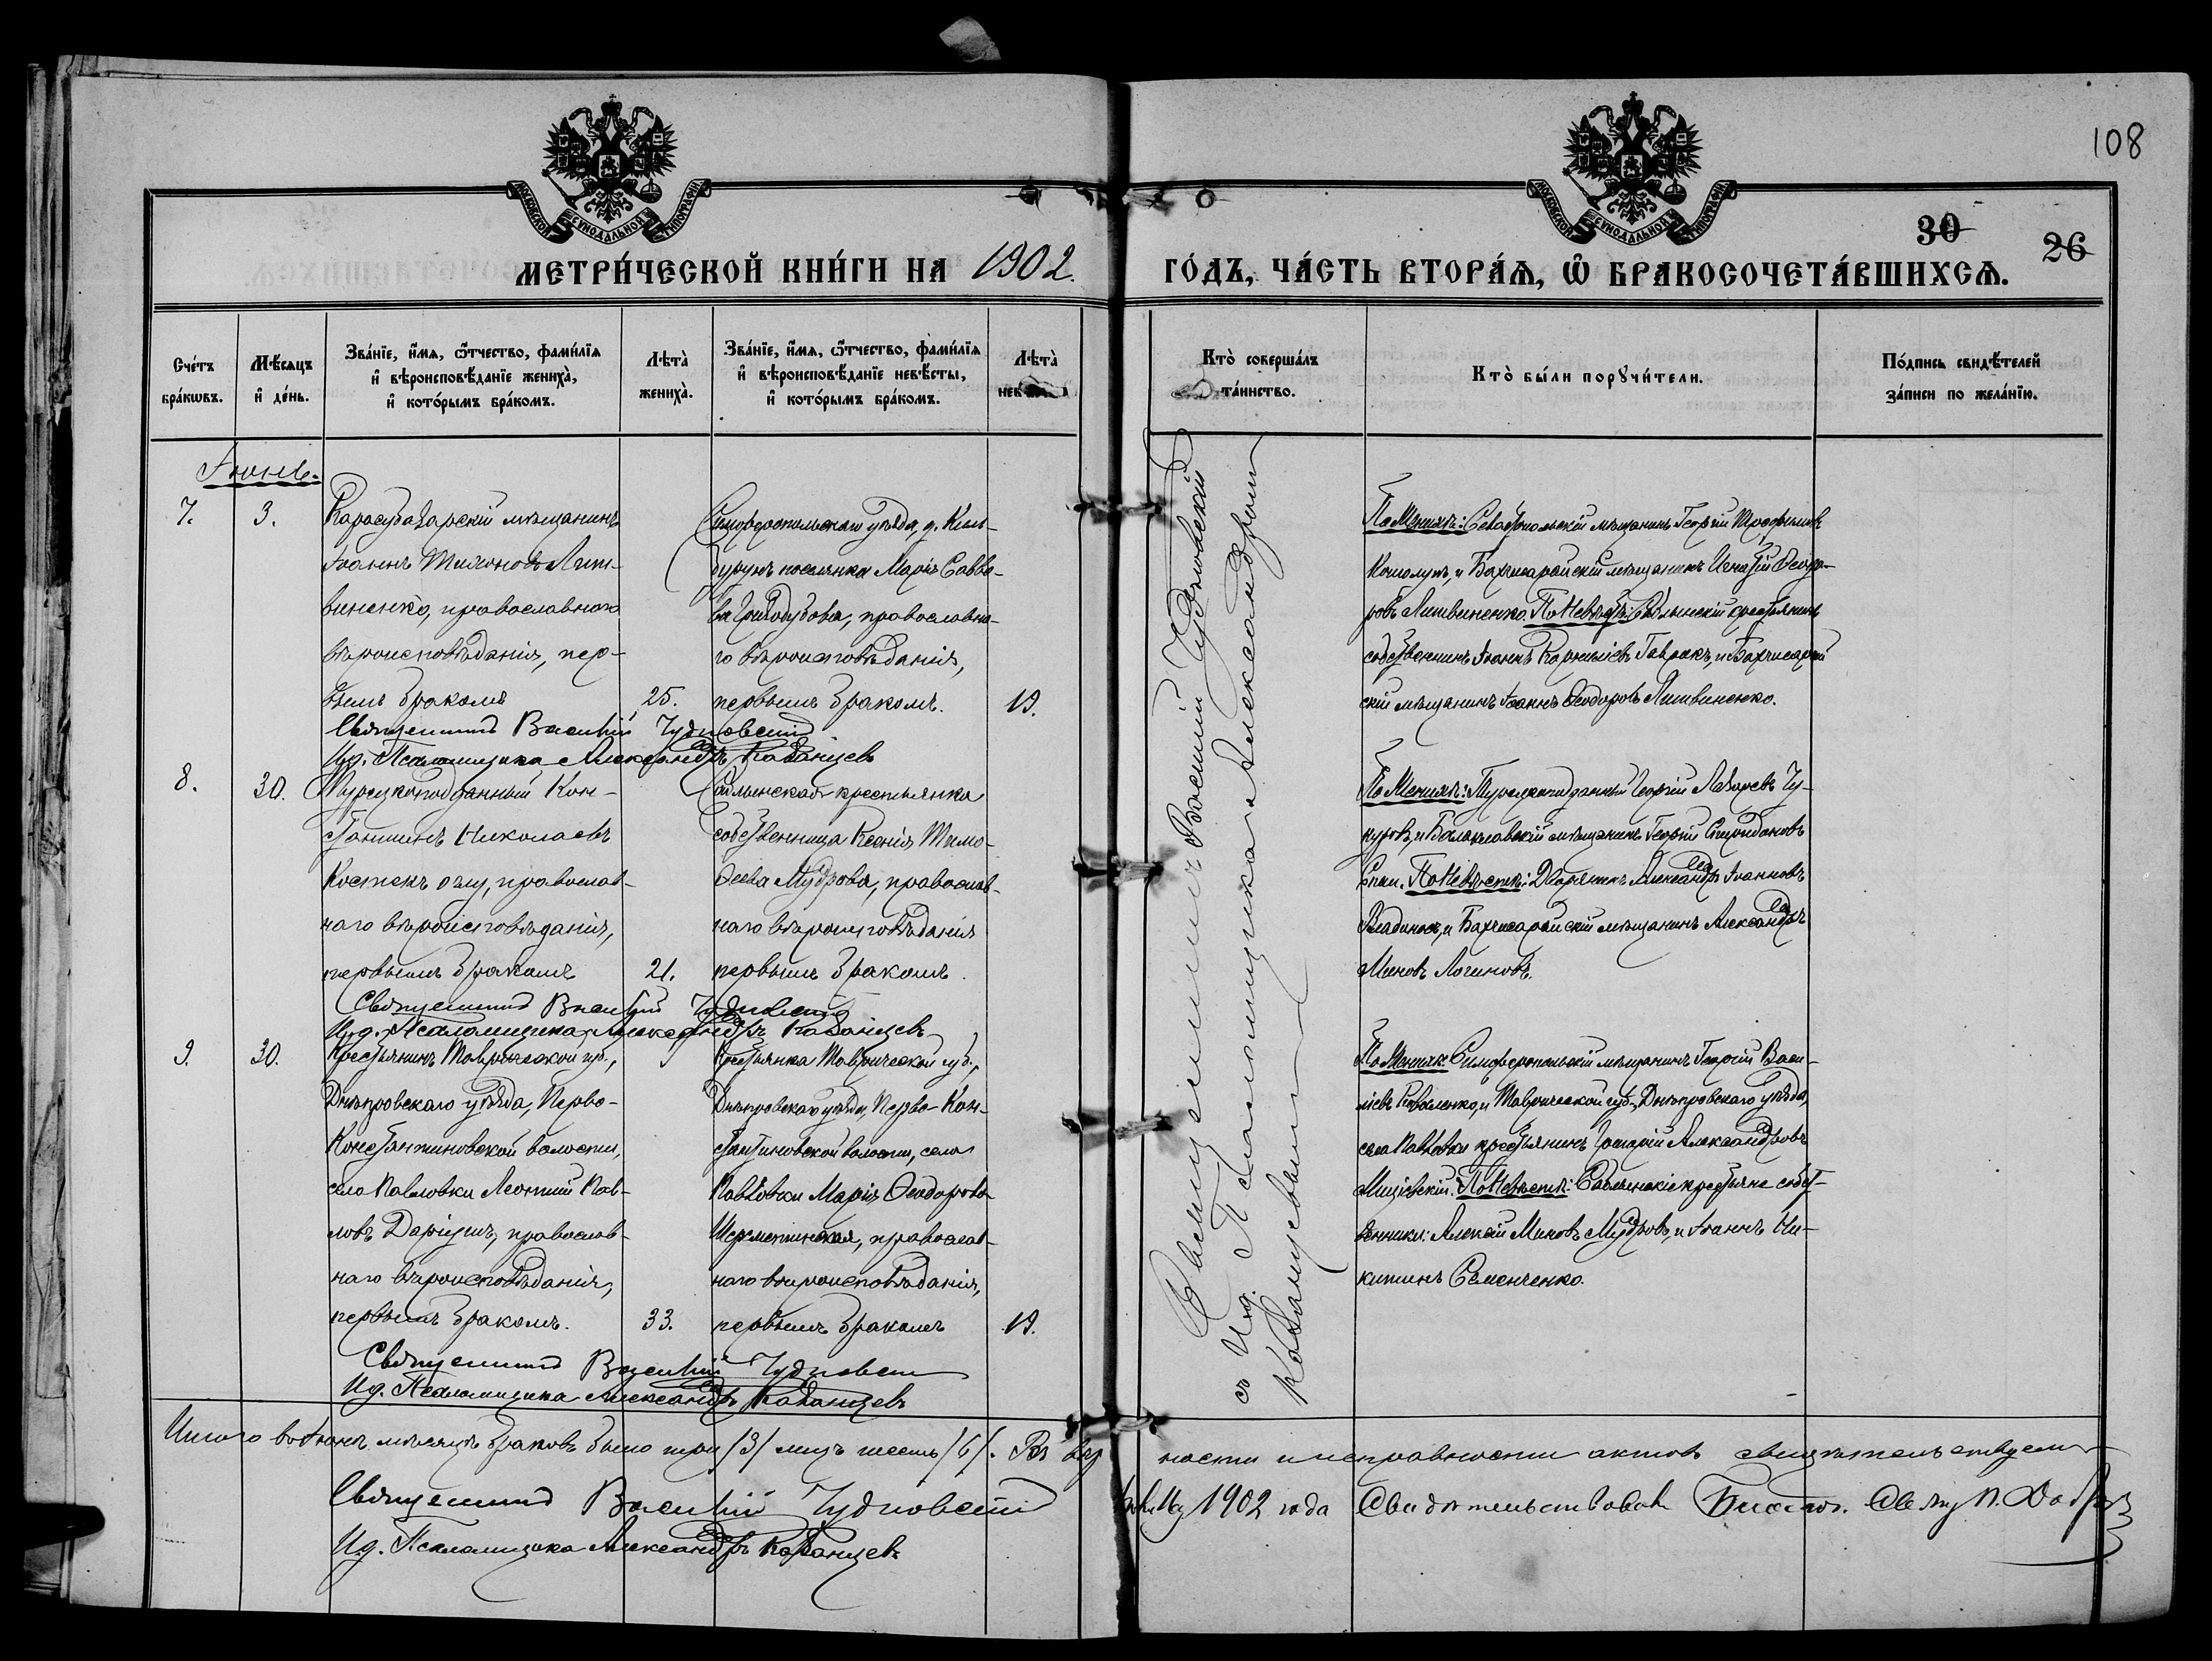 108
МОСКОВСКОЙ СѴНОДАЛЬНОЙ ТИПОГРАФІИ
МОСКОВСКОЙ СѴНОДАЛЬНОЙ ТИПОГРАФІИ
30
26
МЕТРИ́ЧЕСКОЙ КНИ́ГИ НА 1902.
ГО́ДЪ, ЧА́СТЬ ВТОРА́Ѧ, Ѽ БРАКОСОЧЕТА́ВШИХСѦ.
Сче́тъ
бра́кѡвъ.
Мѣ́сяцъ
и҆ де́нь.
Зва́нїе, и҆́мѧ, ѻ҆́тчество, фами́лїѧ
и҆ вѣроисповѣ́данїе жениха̀,
и҆ кото́рымъ бра́комъ.
Лѣта̀
жениха̀.
Зва́нїе, и҆́мѧ, ѻ҆́тчество, фами́лїѧ
и҆ вѣроисповѣ́данїе невѣ́сты,
и҆ кото́рымъ бра́комъ.
Лѣта̀
Кто̀ соверша́лъ
та́инство.
Кто̀ бы́ли порꙋчи́тели.
По́дпись свидѣ́телей
за́писи по жела́нїю.
Іюнь.
7.
3.
Карасубазарскій мѣщанинъ
Іоаннъ Тихоновъ Лит-
виненко, православнаго
вѣроисповѣданія, пер-
вымъ бракомъ
25.
Симферопольскаго уѣзда, д.
поселянка Марія Савво-
ва православна-
го вѣроисповѣданія,
первымъ бракомъ.
19.
По Женихѣ: Севастопольскій мѣщанинъ Георгій Трофимовъ
и Бахчисарайскій мѣщанинъ Игнатій Ѳеодо-
ровъ Литвиненко. По Невѣстѣ: Саблынскій крестьянинъ
собственникъ Іоаннъ Корниліевъ Гаврикъ, и Бахчисарай
скій мѣщанинъ Іоаннъ Ѳеодоровъ Литвиненко.
Священникъ Василій Чудновскій
И.д. Псаломщика Александръ Казанцевъ
8.
30.
Турецкоподданный Кон-
стантинъ Николаевъ
православ-
наго вѣроисповѣданія,
первымъ бракомъ
21.
Саблынская крестьянка
собственница Ксенія Тимо-
ѳеева Мудрова, православ-
наго вѣроисповѣданія
первымъ бракомъ.
По Женихѣ: Турецкоподданный Георгій Лазаревъ Чу-
и Балаклавскій мѣщанинъ Георгій Спиридоновъ
Спаи. По Невѣстѣ: Дворянинъ Александръ Іоанновъ
и Бахчисарайскій мѣщанинъ Александръ
Миновъ Логиновъ.
Священникъ Василій Чудновскій
И.д. Псаломщика Александръ Казанцевъ
9.
30.
Крестьянинъ Таврической губ.,
Днѣпровскаго уѣзда, Перво-
Константиновской волости,
села Павловки Леонтій Пав-
ловъ православ-
наго вѣроисповѣданія,
первымъ бракомъ.
33.
Крестьянка Таврической губ.,
Днѣпровскаго уѣзда, Перво-Кон-
стантиновской волости, села
Павловки Марія Ѳеодорова
Шереметинская, православ-
наго вѣроисповѣданія,
первымъ бракомъ
19.
По Женихѣ: Симферопольскій мѣщанинъ Георгій Васи-
ліевъ Коваленко, и Таврической губ., Днѣпровскаго уѣзда,
села Павловки крестьянинъ Григорій Александровъ
По Невѣстѣ: Саблынскіе крестьяне собст-
венники: Алексѣй Миновъ Мудровъ, и Іоаннъ Ни-
китинъ Семенченко.
Священникъ Василій Чудновскій
И.д. Псаломщика Александръ Казанцевъ
Священникъ Василій Чудновскій
съ И.д. Псаломщика Александромъ
Казанцевымъ
Итого въ Іюнѣ мѣсяцѣ браковъ было три /3/ лицъ шесть /6/. Въ вѣр
ности и исправности актовъ свидѣтельствуемъ
Священникъ Василій Чудновскій
И.д. Псаломщика Александръ Казанцевъ
1902 года Свидѣтельствовалъ Благоч. Свящ.